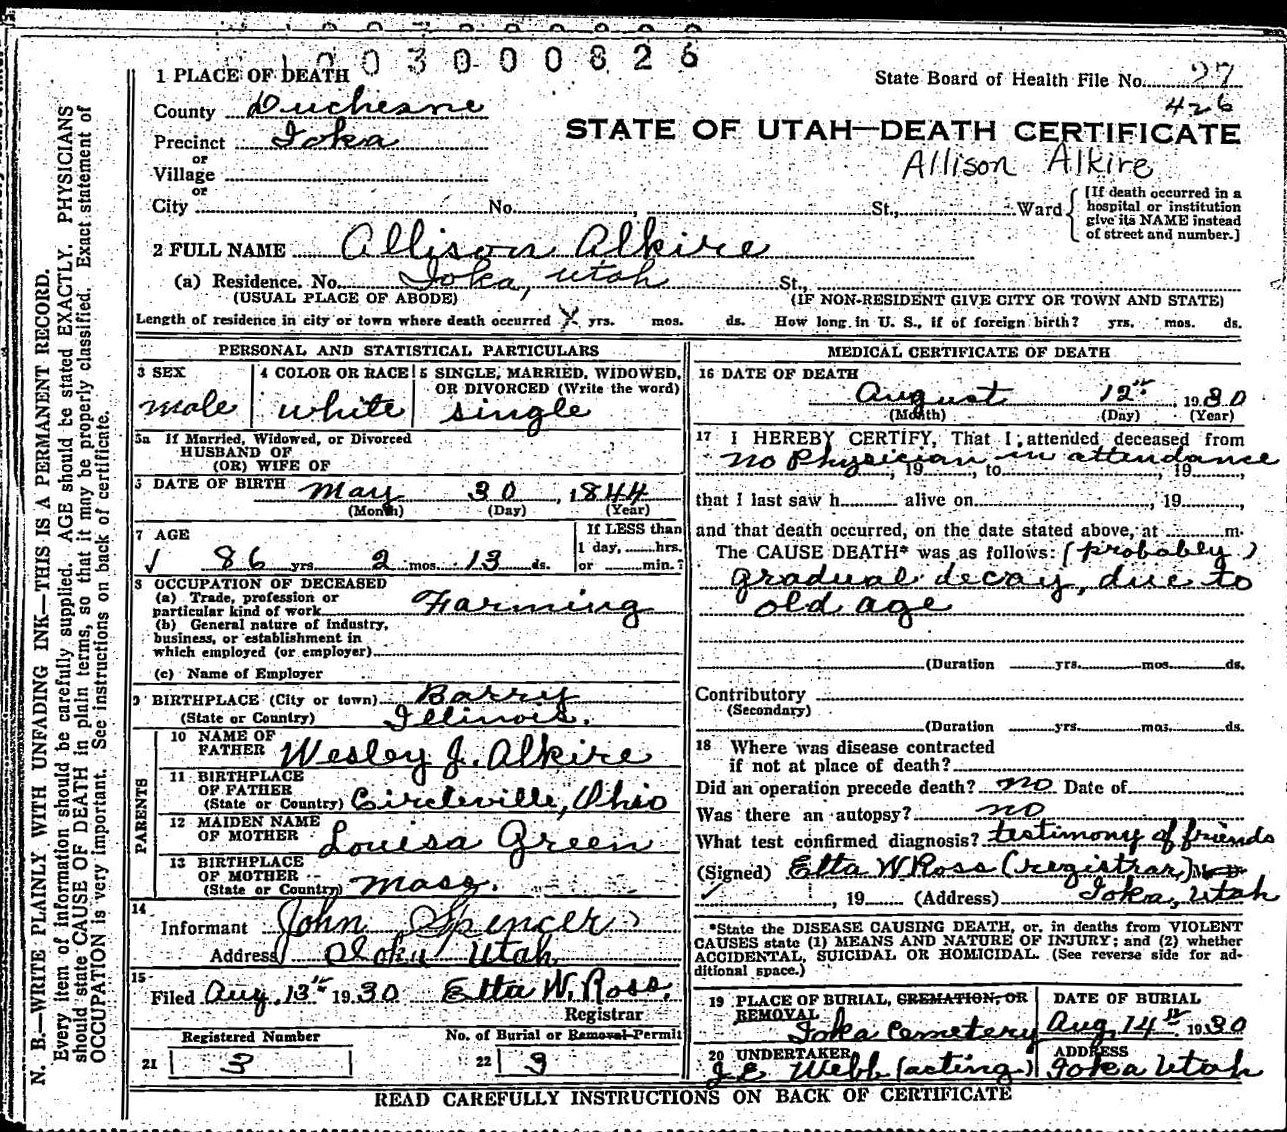 1003000826
1 PLACE OF DEATH
State Board of Health File No. 27
426
County Duchesne
Precinct Ioka
or
Village
or
City No. St., Ward
STATE OF UTAH—DEATH CERTIFICATE
Allison Alkire
[If death occurred in a
hospital or institution
give its NAME instead
of street and number.]
2 FULL NAME Allison Alkire
(a) Residence. No. Ioka, Utah St.,
(USUAL PLACE OF ABODE) (IF NON-RESIDENT GIVE CITY OR TOWN AND STATE)
Length of residence in city or town where death occurred yrs. mos. ds. How long in U. S., if of foreign birth? yrs. mos. ds.
PERSONAL AND STATISTICAL PARTICULARS
3 SEX
male
4 COLOR OR RACE
white
5 SINGLE, MARRIED, WIDOWED,
OR DIVORCED (Write the word)
single
5a If Married, Widowed, or Divorced
HUSBAND OF
(OR) WIFE OF
DATE OF BIRTH May 30, 1844
(Month) (Day) (Year)
7 AGE
86 yrs 2 mos. 13 ds.
If LESS than
1 day, hrs.
or min.?
8 OCCUPATION OF DECEASED
(a) Trade, profession or
particular kind of work Farming
(b) General nature of industry,
business, or establishment in
which employed (or employer)
(c) Name of Employer
9 BIRTHPLACE (City or town) Barry
(State or Country) Illinois.
PARENTS
10 NAME OF
FATHER Wesley J. Alkire
11 BIRTHPLACE
OF FATHER
(State or Country) Circleville, Ohio
12 MAIDEN NAME
OF MOTHER Louisa Green
13 BIRTHPLACE
OF MOTHER
(State or Country) Mass.
14
Informant John Spencer
Address Ioka Utah
15
Filed Aug. 13th 1930 Etta W. Ross,
Registrar
Registered Number
21 3
No. of Burial or Removal Permit
22 3
MEDICAL CERTIFICATE OF DEATH
16 DATE OF DEATH
August 12th 1930
(Month) (Day) (Year)
17 I HEREBY CERTIFY, That I attended deceased from
no Physician in attendance
, 19 , to , 19 ,
that I last saw h alive on , 19
and that death occurred, on the date stated above, at m.
The CAUSE DEATH* was as follows: (probably)
gradual decay, due to
old age
(Duration yrs. mos. ds.
Contributory
(Secondary)
(Duration yrs. mos. ds.
18 Where was disease contracted
if not at place of death?
Did an operation precede death? no Date of
Was there an autopsy? no
What test confirmed diagnosis? testimony of friends
(Signed) Etta W Ross (registrar) M. D.
, 19 (Address) Ioka, Utah
*State the DISEASE CAUSING DEATH, or, in deaths from VIOLENT
CAUSES state (1) MEANS AND NATURE OF INJURY; and (2) whether
ACCIDENTAL, SUICIDAL OR HOMICIDAL. (See reverse side for ad-
ditional space.)
19 PLACE OF BURIAL, CREMATION, OR
REMOVAL
Ioka Cemetery
DATE OF BURIAL
Aug. 14th 1930
20 UNDERTAKER
J E Webb (acting)
ADDRESS
Ioka Utah
READ CAREFULLY INSTRUCTIONS ON BACK OF CERTIFICATE
N. B.—WRITE PLAINLY WITH UNFADING INK—THIS IS A PERMANENT RECORD.
Every item of information should be carefully supplied. AGE should be stated EXACTLY. PHYSICIANS
should state CAUSE OF DEATH in plain terms, so that it may be properly classified. Exact statement of
OCCUPATION is very important. See instructions on back of certificate.